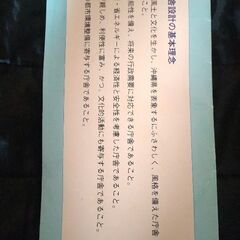 舎設計の基本理念
風土と文化を生かし、沖縄県を表象するにふさわしく、風格を備えた庁舎
能性を備え、将来の行政需要に対応できる庁舎であること。
・省エネルギーによる経済性と安全性を考慮した庁舎であること。
親しめ、利便性に富み、かつ、文化的活動にも寄与する庁舎であること。
都市環境整備に寄与する庁舎であること。